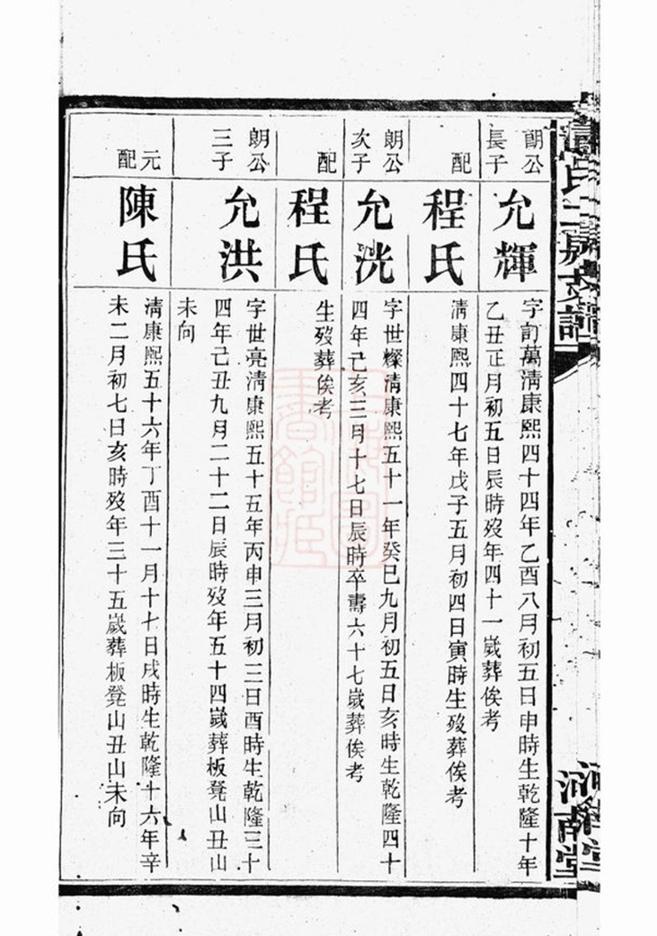 朗公
長子
允輝
字訂萬清康熙四十四年乙酉八月初五日申時生乾隆十年
乙丑正月初五日辰時歿年四十一嵗葬俟考
配
程氏
清康熙四十七年戊子五月初四日寅時生歿葬俟考
朗公
次子
允洸
字世燦清康熙五十一年癸巳九月初五日亥時生乾隆四十
四年己亥三月十七日辰時卒壽六十七嵗葬俟考
配
程氏
生歿葬俟考
朗公
三子
允洪
字世亮清康熙五十五年丙申三月初三日酉時生乾隆三十
四年己丑九月二十二日辰時歿年五十四嵗葬板凳山丑山
未向
元配
陳氏
清康熙五十六年丁酉十一月十七日戌時生乾隆十六年辛
未二月初七日亥時歿年三十五嵗葬板凳山丑山未向
河南堂